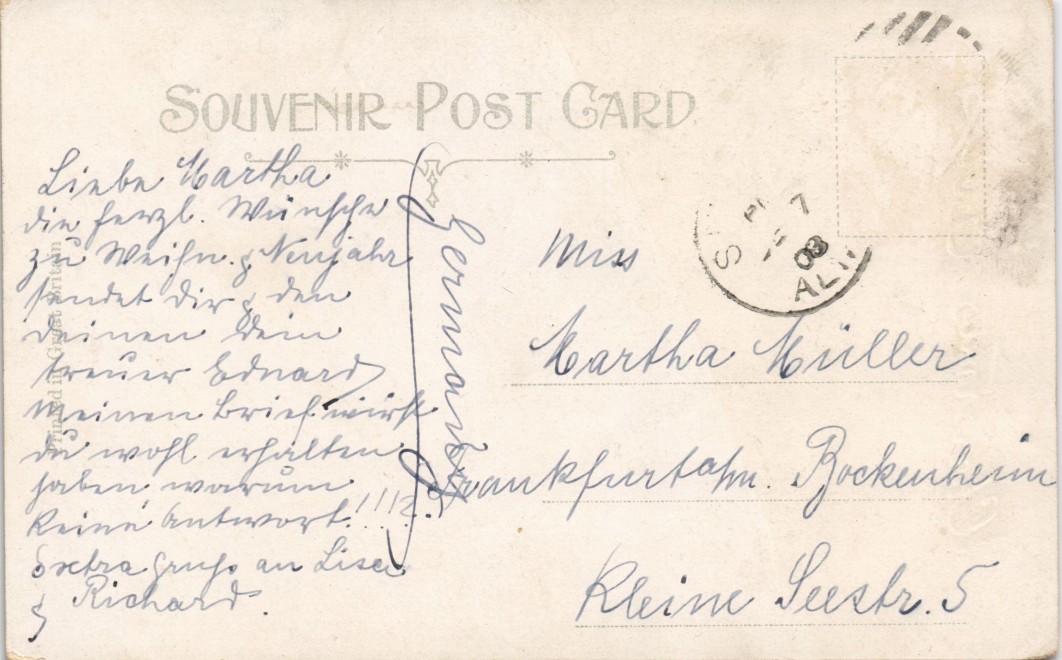 SOUVENIR POST CARD
Liebe Martha
die herzl. Wünsche
zu Weihn. & Neujahr
sendet dir & den
deinen dein
treuer Eduard
meinen Brief wirst
du wohl erhalten
haben, warum
keine Antwort.!!!?.
Extra Gruss an Lise
& Richard.
Germany
Miss
Martha Müller
Frankfurt a/m. Bockenheim
Kleine Seestr. 5
Printed in Great Britain
7
03